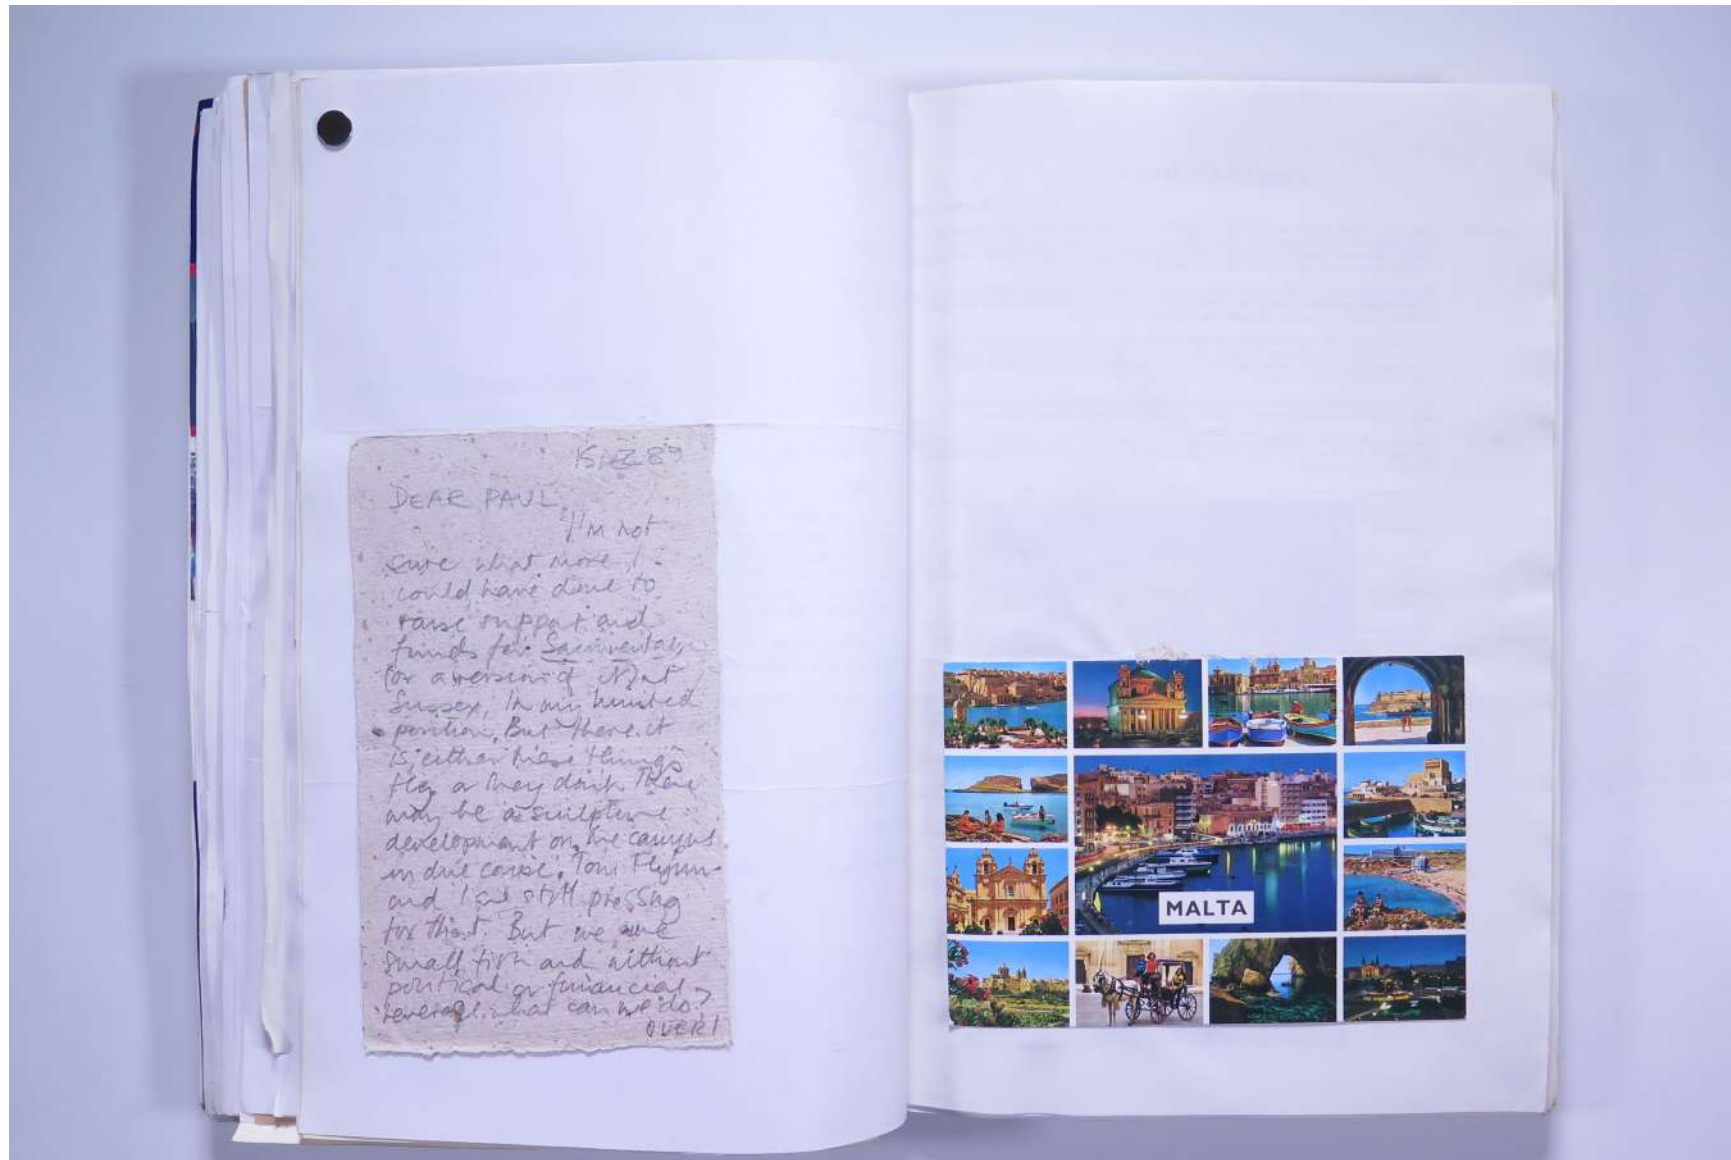 DEAR PAUL,
I'm not
sure what more I
could have done to
raise support and
funds for
for a version of it at
Sussex, in my limited
position. But there it
is, either these things
fly or they don't. There
may be a sculpture
development on the campus
in due course; Tom Flynn
and I are still pressing
for that. But we are
small fish and without
political or financial
leverage what can we do?
OVER!
MALTA